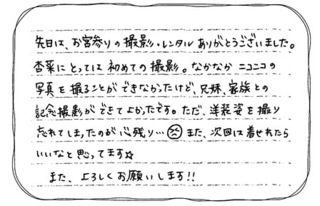 先日は、お宮参りの撮影、レンタルありがとうございました。
杏菜にとっては初めての撮影。なかなかニコニコの
写真を撮ることができなかったけど、兄妹、家族との
記念撮影ができてよかったです。ただ、洋装姿を撮り
忘れてしまったのが心残り… また、次回に着せれたら
いいなと思ってます☆
また、よろしくお願いします!!